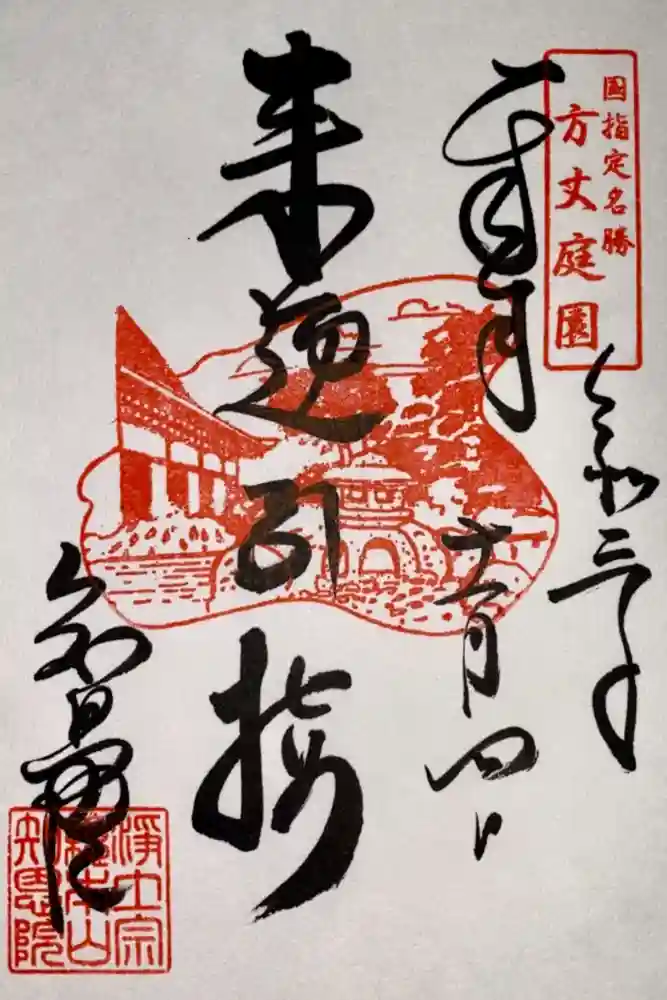 国指定名勝
方丈庭園
令和三年
十一月四日
来迎引接
淨土宗
總本山
知恩院